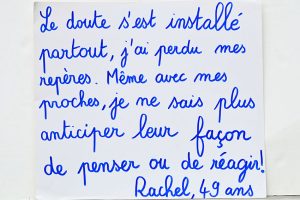 Le doute s'est installé
partout, j'ai perdu mes
repères. Même avec mes
proches, je ne sais plus
anticiper leur façon
de penser ou de réagir!
Rachel, 49 ans